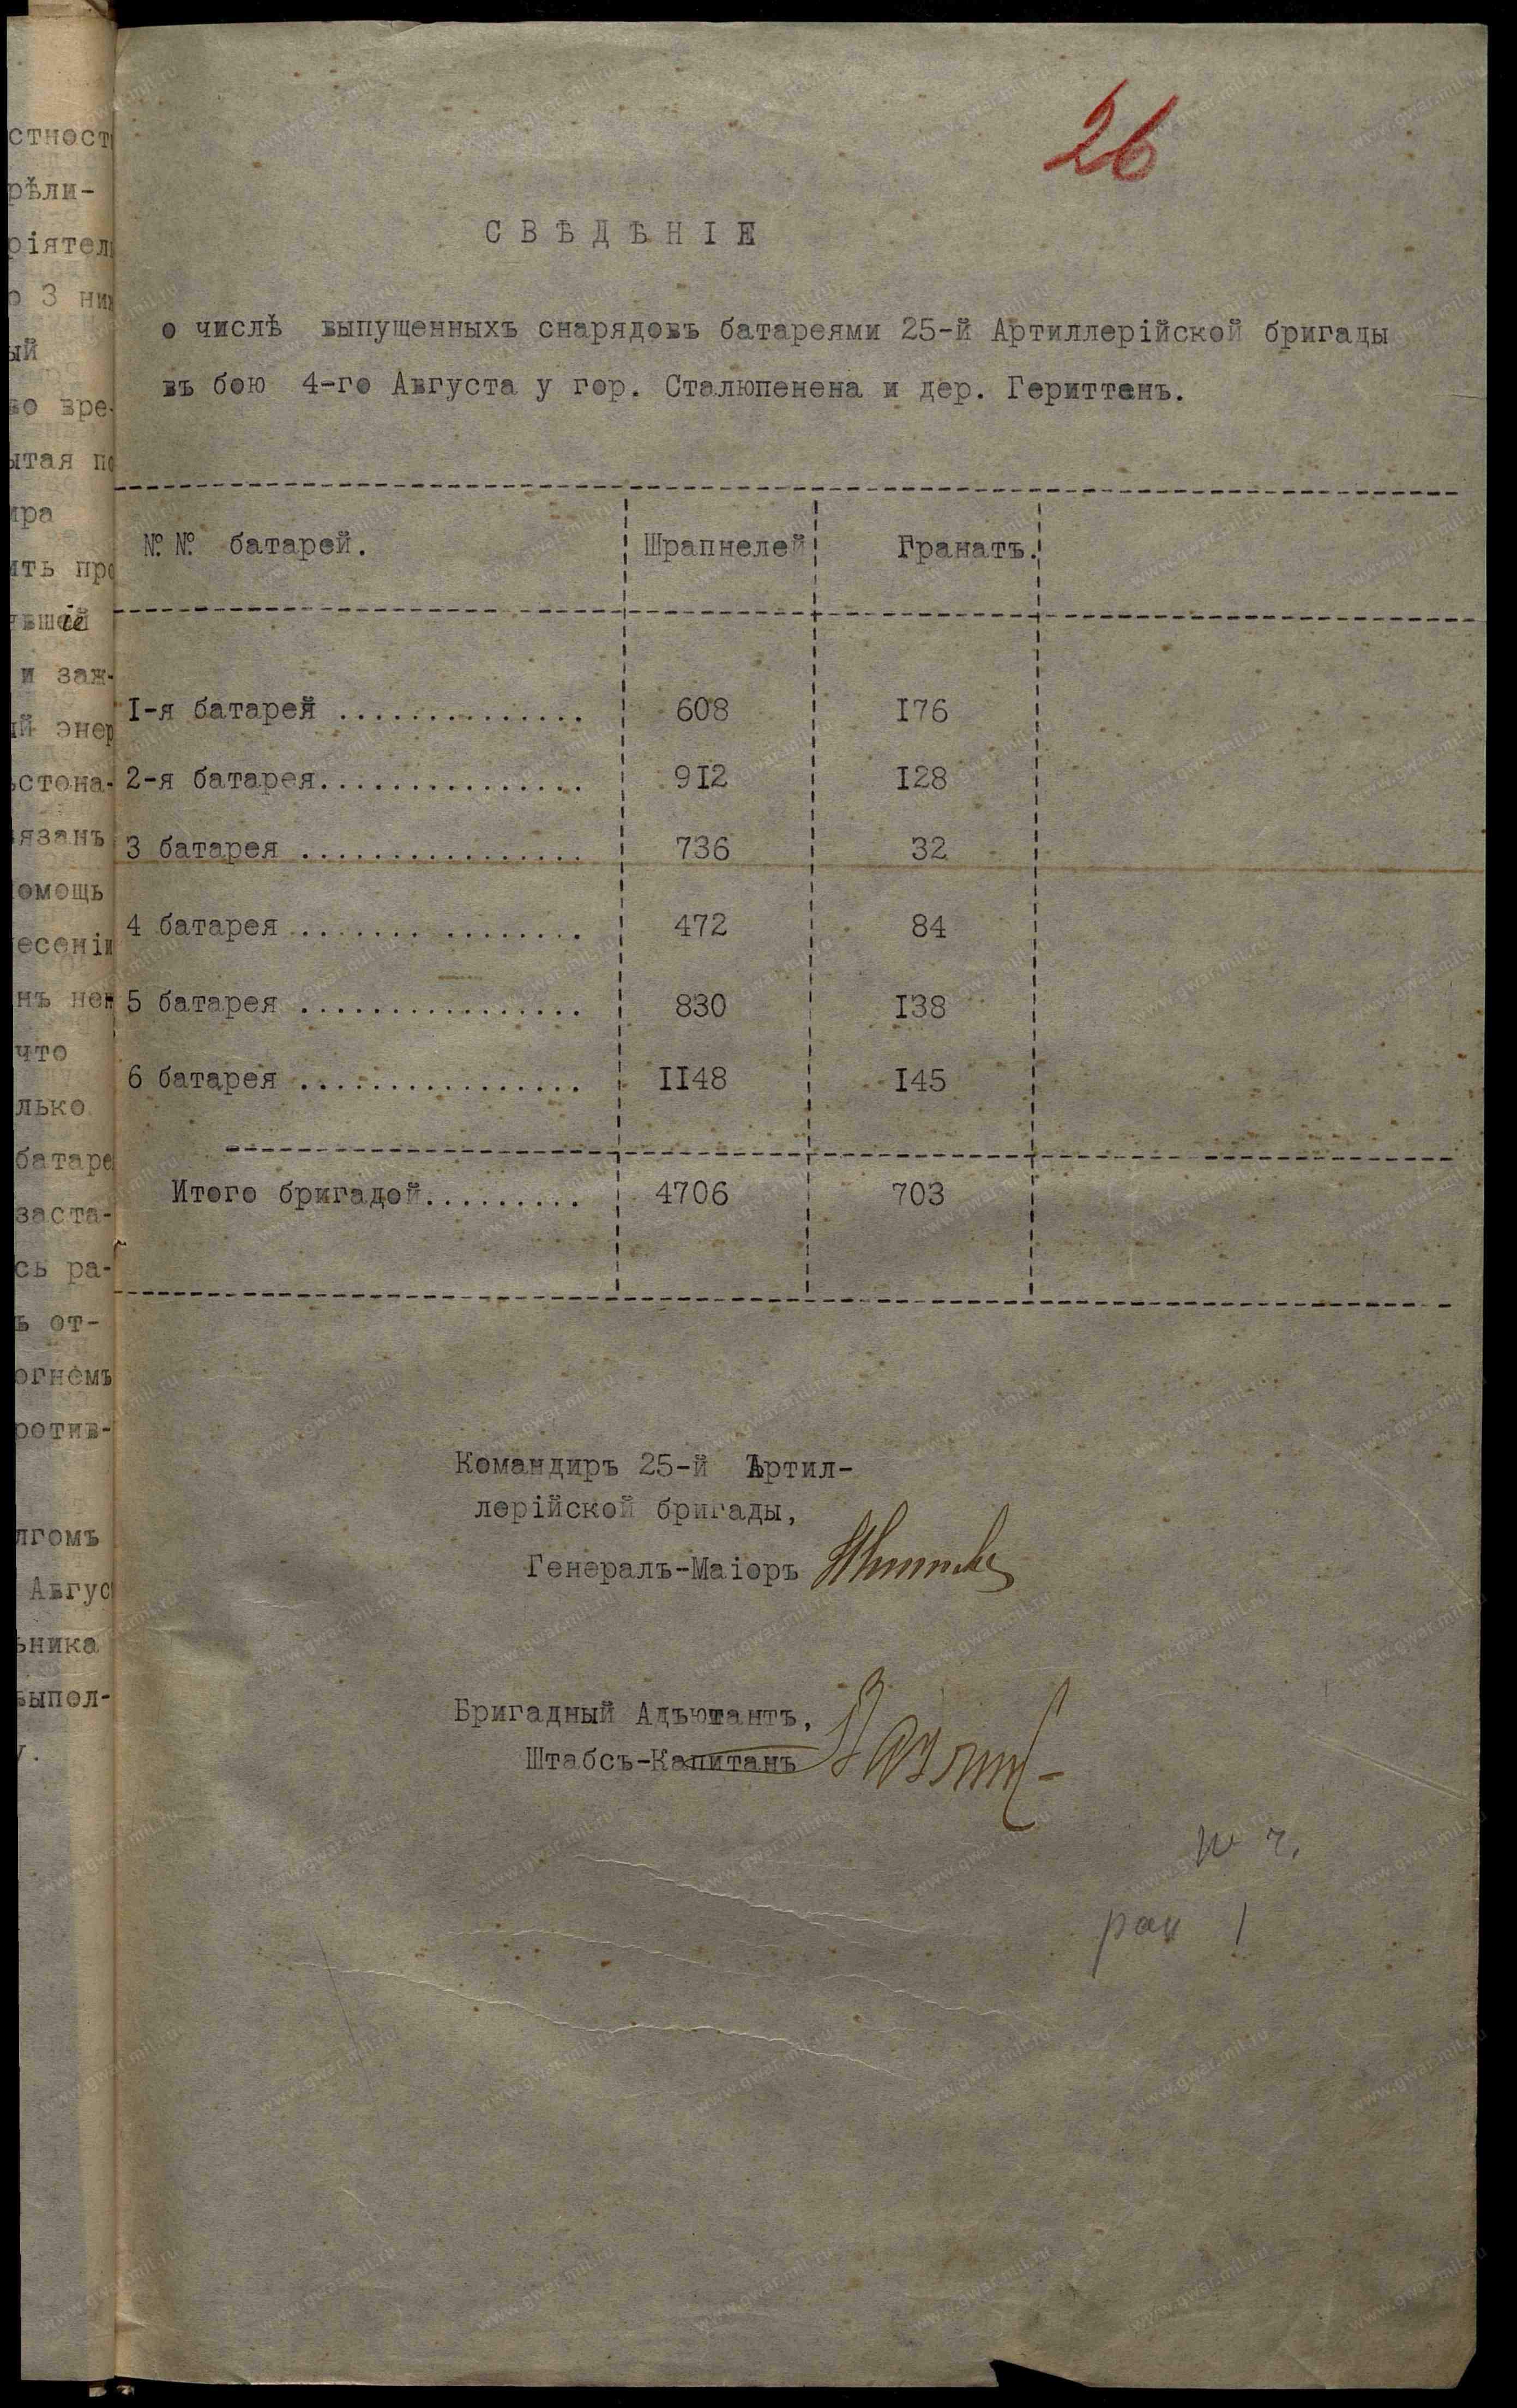 26
СВѢДѢНІЕ
о числѣ выпущенныхъ снарядовъ батареями 25-й Артиллерійской бригады
въ бою 4-го Августа у гор. Сталюпенена и дер. Гериттенъ.
№.№. батарей. Шрапнелей Гранатъ.
I-я батарей .............. 608 I76
2-я батарея............... 9I2 I28
3 батарея ................ 736 32
4 батарея ................ 472 84
5 батарея ................ 830 I38
6 батарея ................ II48 I45
Итого бригадой......... 4706 703
Командиръ 25-й Артил-
лерійской бригады,
Генералъ-Маіоръ
Бригадный Адъютантъ,
Штабсъ-Капитанъ
стност
рѣли-
ріятел
3 ни
ый
во вре-
ытая по
ира
ить про
и заж-
ій энер
ьстона-
вязанъ
омощь
есеніи
нъ неп
что
лько
батаре
заста-
сь ра-
ъ от-
огнемъ
ротив-
лгомъ
Авгус
ьника
выпол-
у.
www.gwar.mil.ru